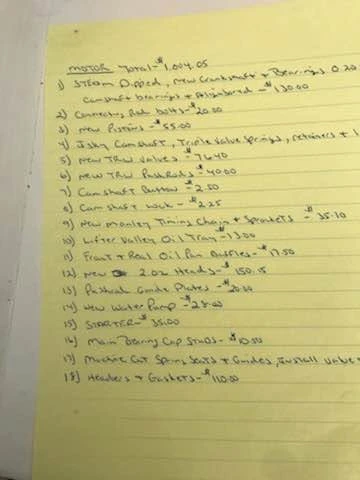 MOTOR Total - $1,004.05
1) STEAM Dipped, New Crankshaft + Bearings 0.20
Camshaft bearings + Align bored - $130.00
2) Connecting Rod bolts - $20.00
3) New Pistons - $55.00
4) Isky Camshaft, Triple Valve Springs, retainers +
5) New TRW Valves - $76.40
6) New TRW PushRods - $40.00
7) Camshaft Button - $2.50
8) Cam shaft Lock - $2.25
9) New Manley Timing Chain + Sprockets - $35.10
10) Lifter Valley Oil Tray - $13.00
11) Front + Rear Oil Pan Baffles - $17.50
12) New 2.02 Heads - $150.15
13) Pushrod Guide Plates - $20.00
14) New Water Pump - $28.00
15) STARTER - $35.00
16) Main Bearing Cap Studs - $10.50
17) Machine Cut Spring Seats + Guides, Install Valve
18) Headers + Gaskets - $110.00